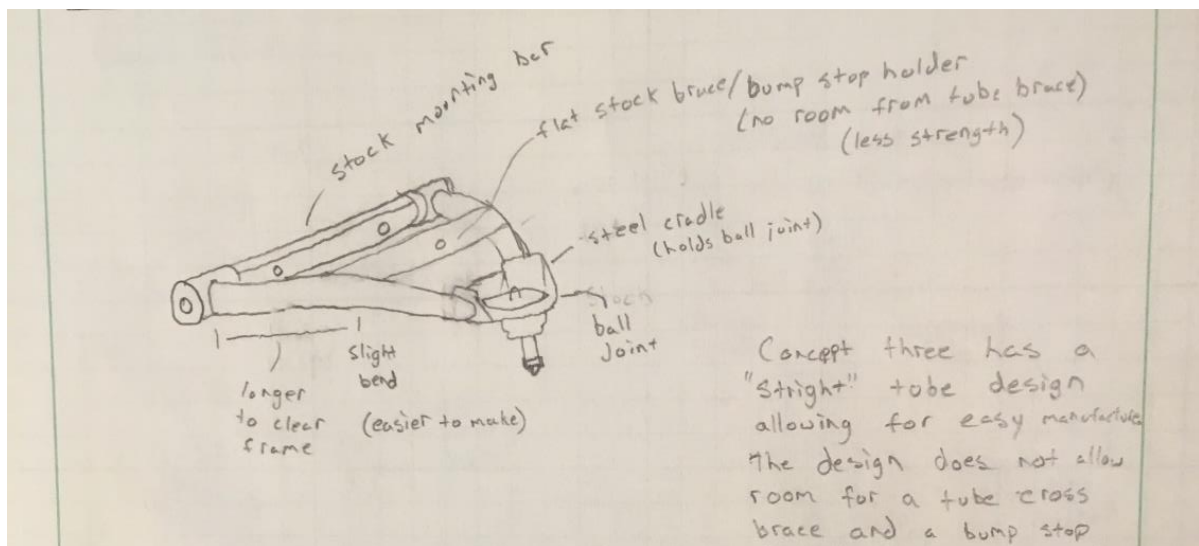 stock mounting bar
flat stock brace/bump stop holder
(no room from tube brace)
(less strength)
steel cradle
(holds ball joint)
stock
ball
joint
slight
bend
longer
to clear
frame
(easier to make)
Concept three has a
"Stright" tube design
allowing for easy manufacture
The design does not allow
room for a tube cross
brace and a bump stop